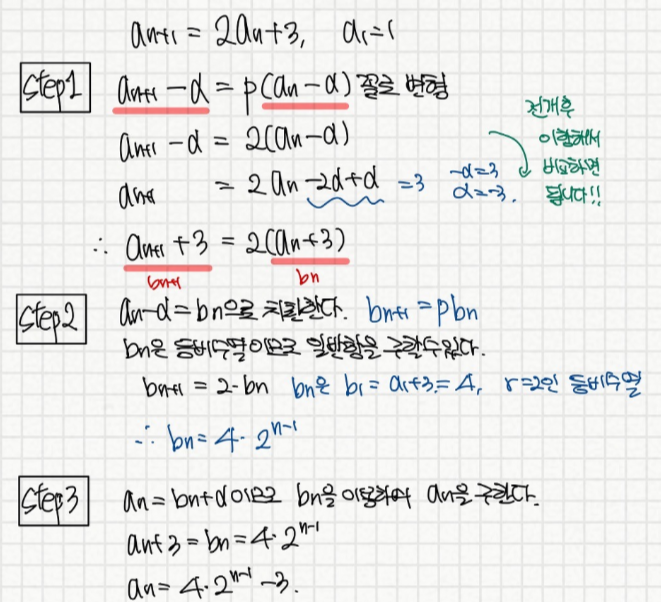 aₙ₊₁ = 2aₙ+3, a₁=1
Step1 aₙ₊₁ -α = p(aₙ-α) 꼴로 변형
aₙ₊₁ -α = 2(aₙ-α)
aₙ₊₁ = 2aₙ -2α+α =3 -α=3
α=-3.
전개후
이항해서
비교하면
됩니다!!
∴ aₙ₊₁ +3 = 2(aₙ+3)
bₙ₊₁ bₙ
Step2 aₙ-α=bₙ으로 치환한다. bₙ₊₁ =pbₙ
bₙ은 등비수열이므로 일반항을 구할수있다.
bₙ₊₁ = 2·bₙ bₙ은 b₁= a₁+3=4, r=2인 등비수열
∴ bₙ= 4·2ⁿ⁻¹
Step3 aₙ= bₙ+α이므로 bₙ을 이용하여 aₙ을 구한다.
aₙ+3 = bₙ = 4·2ⁿ⁻¹
aₙ= 4·2ⁿ⁻¹ -3.